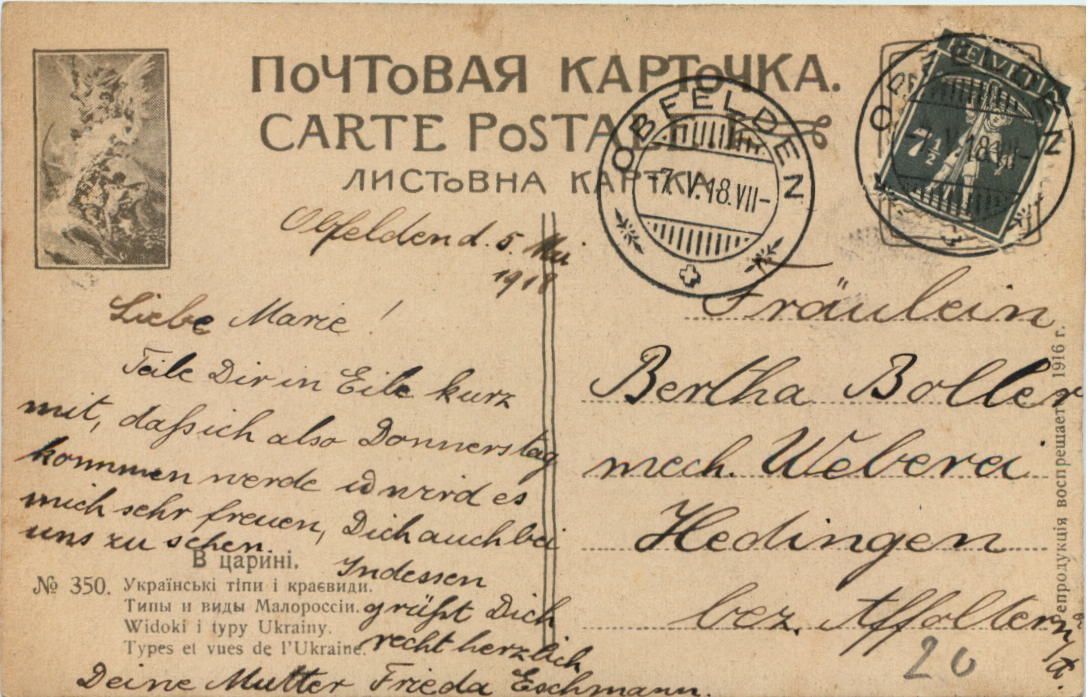 ПОЧТОВАЯ КАРТОЧКА.
CARTE POSTALE
ЛИСТОВНА КАРТКА
HELVETIA
7½
OBFELDEN
-7.V.18.VII-
OBFELDEN
Obfelden d. 5. Mai
1918
Liebe Marie!
Teile Dir in Eile kurz
mit, daß ich also Donnerstag
kommen werde u wird es
mich sehr freuen, Dich auch bei
uns zu sehen.
Indessen
grüßt Dich
recht herzlich
Deine Mutter Frieda Eschmann.
Fräulein
Bertha Boller
mech. Weberei
Hedingen
bez. Affoltern a/A.
20
В царині.
№ 350. Українські тіпи і краєвиди.
Типы и виды Малороссіи.
Widoki i typy Ukrainy.
Types et vues de l'Ukraine.
Репродукція воспрещается 1916 г.